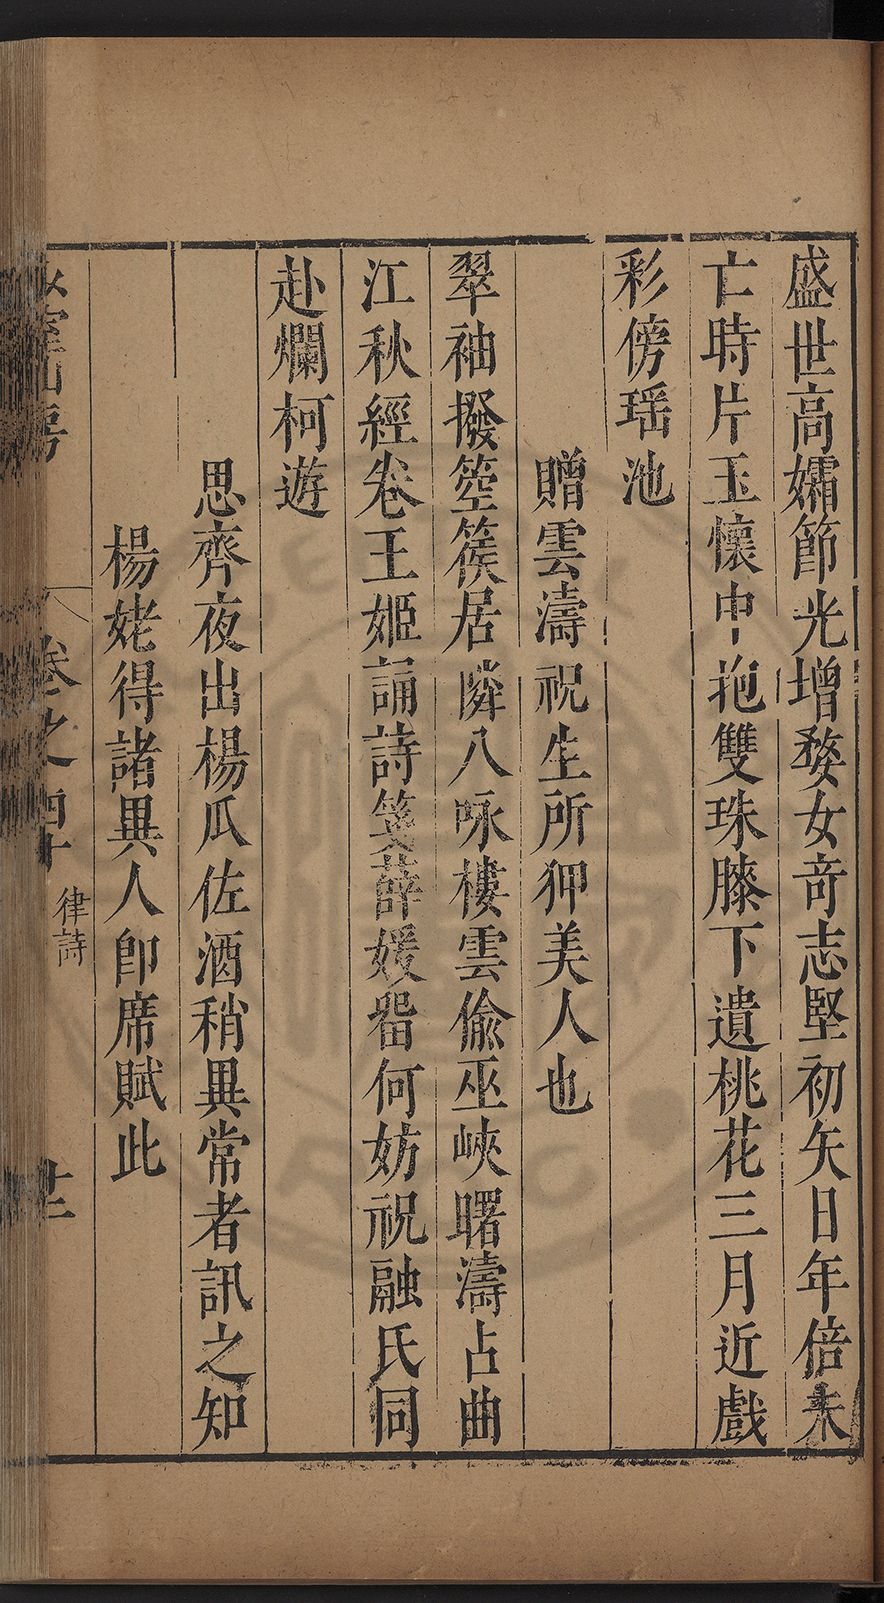 盛世高孀節光增婺女竒志堅初矢日年倍未
亡時片玉懷中抱雙珠膝下遺桃花三月近戲
彩傍瑶池
贈雲濤祝生所狎美人也
翠袖撥箜篌居隣八咏樓雲偷巫峽曙濤占曲
江秋經卷王姬誦詩箋薛媛畱何妨祝融氏同
赴爛柯遊
思齊夜出楊瓜佐酒稍異常者訊之知
楊姥得諸異人卽席賦此
房
卷之四十
律詩
廿二